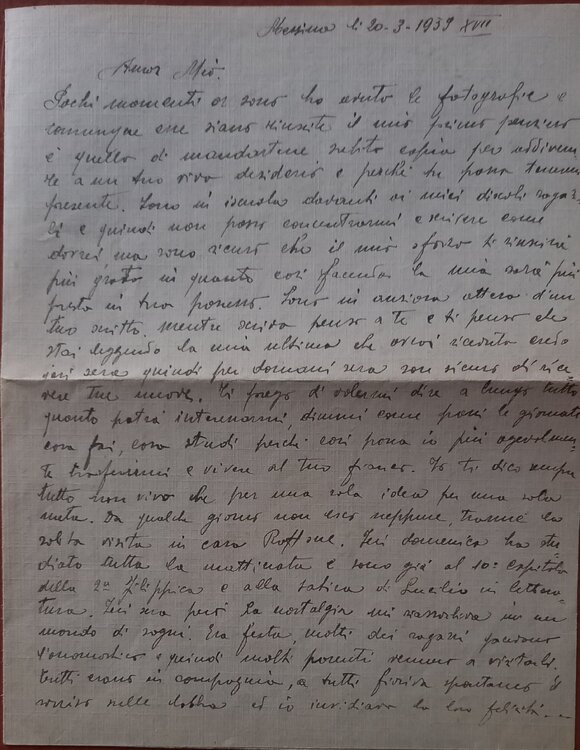 Messina li 20-3-1939 XVII
Amor Mio.
Pochi momenti or sono ho avuto le fotografie e
comunque esse siano riuscite il mio primo pensiero
è quello di mandartene subito copia per addiveni-
re a un tuo vivo desiderio e perchè tu possa tenermi
presente. Sono in iscuola davanti ai miei discoli ragaz-
zi e quindi non posso concentrarmi e scrivere come
dovrei, ma sono sicuro che il mio sforzo ti riuscirà
più grato in quanto così facendo la mia sarà più
presto in tuo possesso. Sono in ansiosa attesa d'un
tuo scritto, mentre scrivo penso a te e ti penso che
stai leggendo la mia ultima che avrai ricevuto credo
ieri sera quindi per domani sera son sicuro di rice-
vere tue nuove. Ti prego di volermi dire a lungo tutto
quanto potrà interessarmi, dimmi come passi le giornate
cosa fai, cosa studi perchè così possa io più agevolmen-
te trasferirmi e vivere al tuo fianco. Io ti dico sempre
tutto non vivo che per una sola idea per una sola
meta. Da qualche giorno non esco neppure, tranne la
solita visita in casa Ieri domenica ho stu-
diato tutta la mattinata e sono già al 10° capitolo
della 2ª Filippica e alla satira di Lucilio in lettera-
tura. Ieri sera però la nostalgia mi in un
mondo di sogni. Era festa, molti dei ragazzi facevano
l'onomastico e quindi molti parenti vennero a visitarli.
tutti erano in compagnia, a tutti fioriva spontaneo il
sorriso sulle labbra ed io invidiavo la loro felicità...